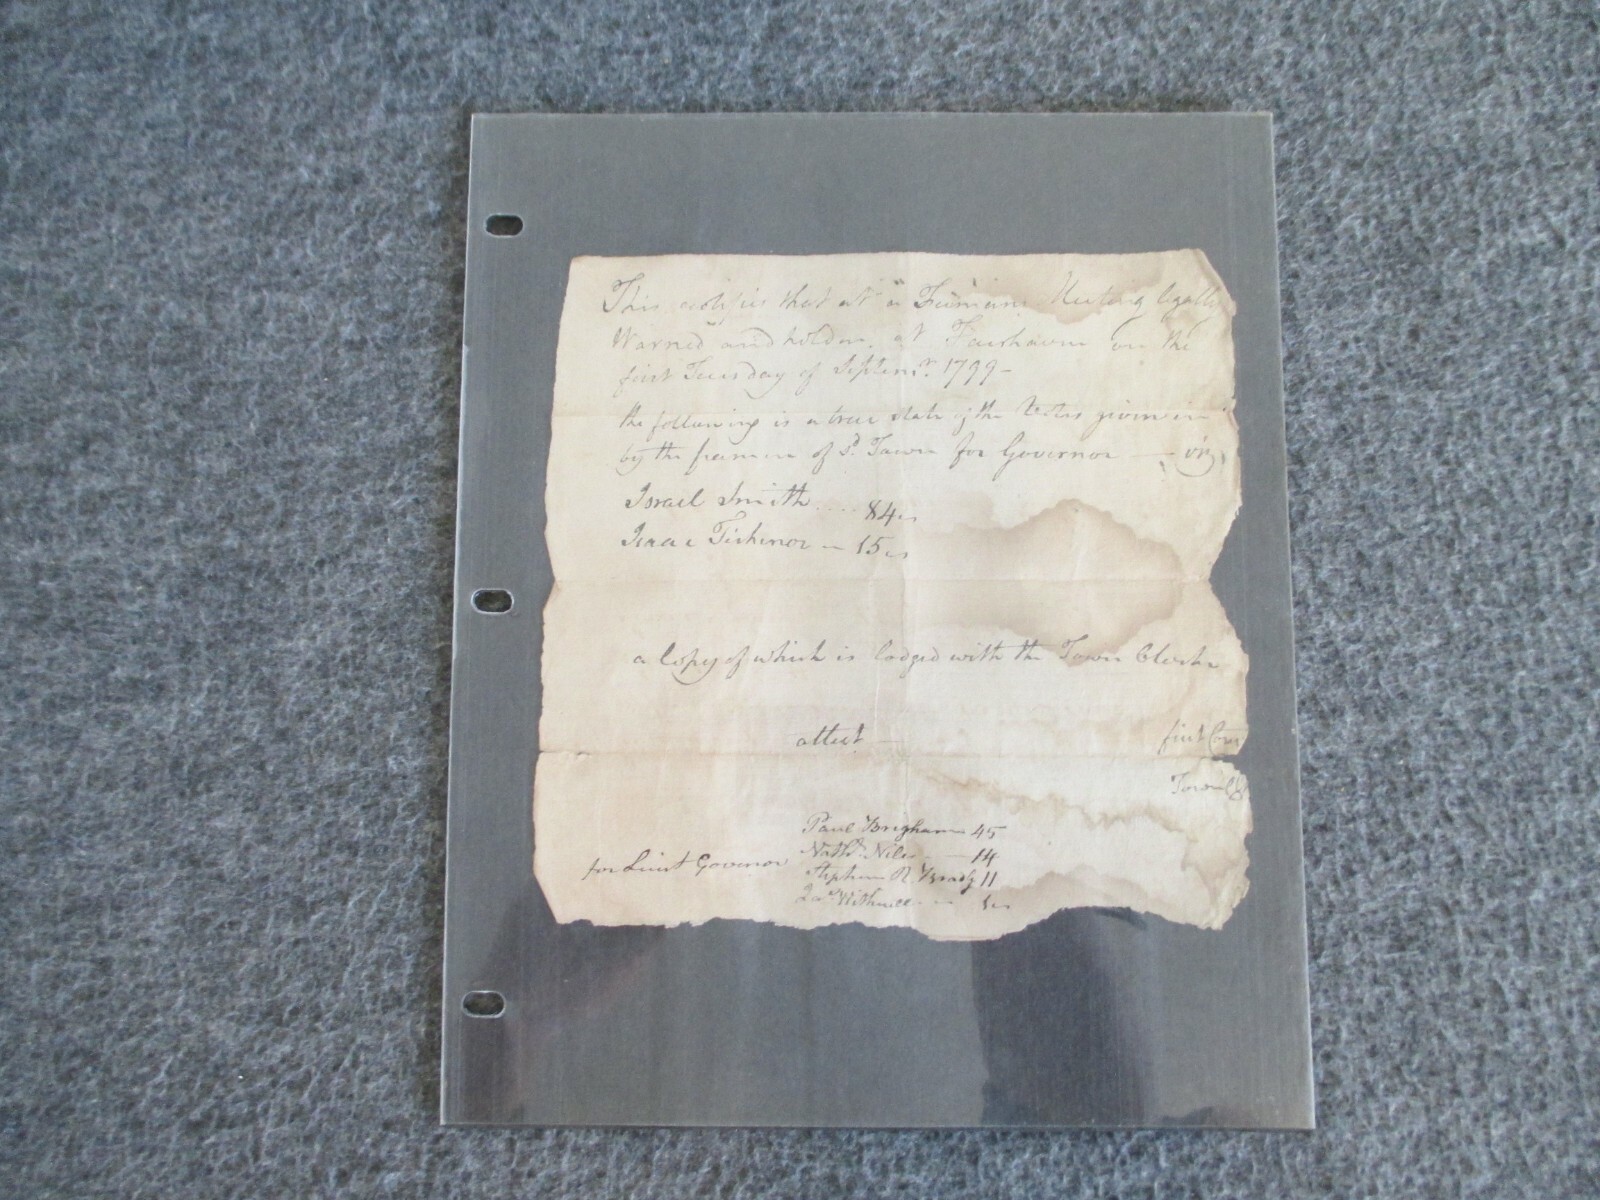 This certifies that at a Freemans Meeting legally
Warned and holden at Fairhaven on the
first Tuesday of Septemr. 1799-
the following is a true state of the Votes given in
by the freemen of sd. Town for Governor — viz
Israel Smith .... 84
Isaac Tichenor — 15
a Copy of which is lodged with the Town Clerk
attest first Con
Town
Paul Brigham 45
Nathl. Niles — 14
for Lieut Govenor Stephen R. Bradly 11